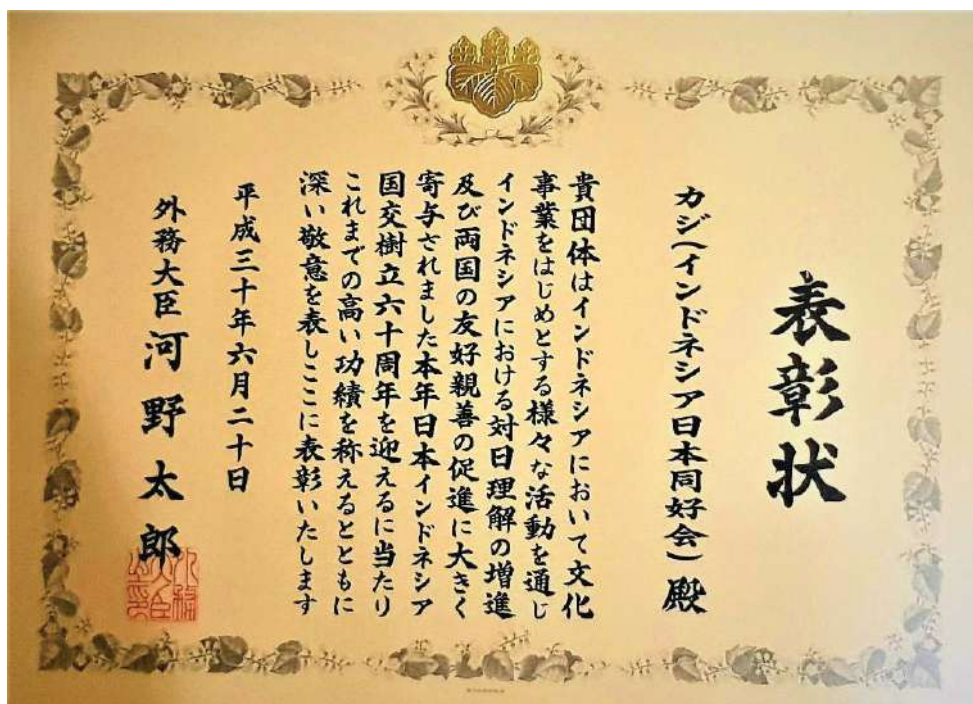 表彰状
カジ(インドネシア日本同好会)殿
貴団体はインドネシアにおいて文化
事業をはじめとする様々な活動を通じ
インドネシアにおける対日理解の増進
及び両国の友好親善の促進に大きく
寄与されました本年日本インドネシア
国交樹立六十周年を迎えるに当たり
これまでの高い功績を称えるとともに
深い敬意を表しここに表彰いたします
平成三十年六月二十日
外務大臣 河野太郎